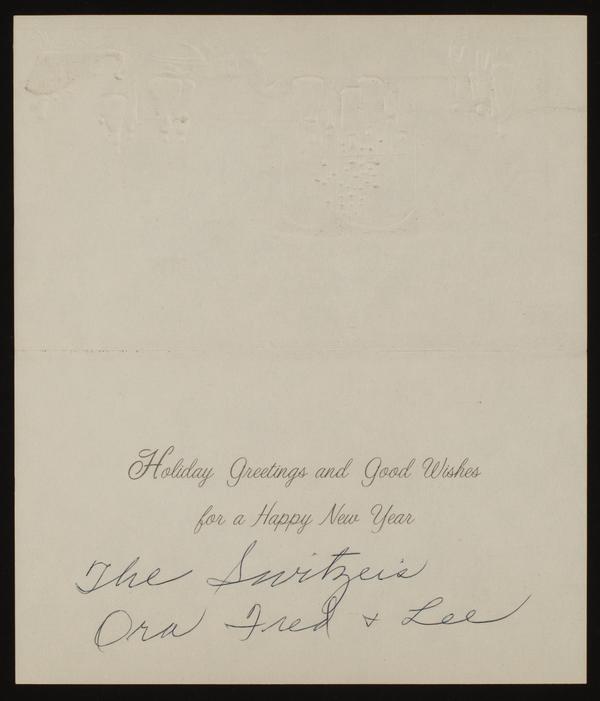 Holiday Greetings and Good Wishes
for a Happy New Year
The Switzers
Ora Fred + Lee